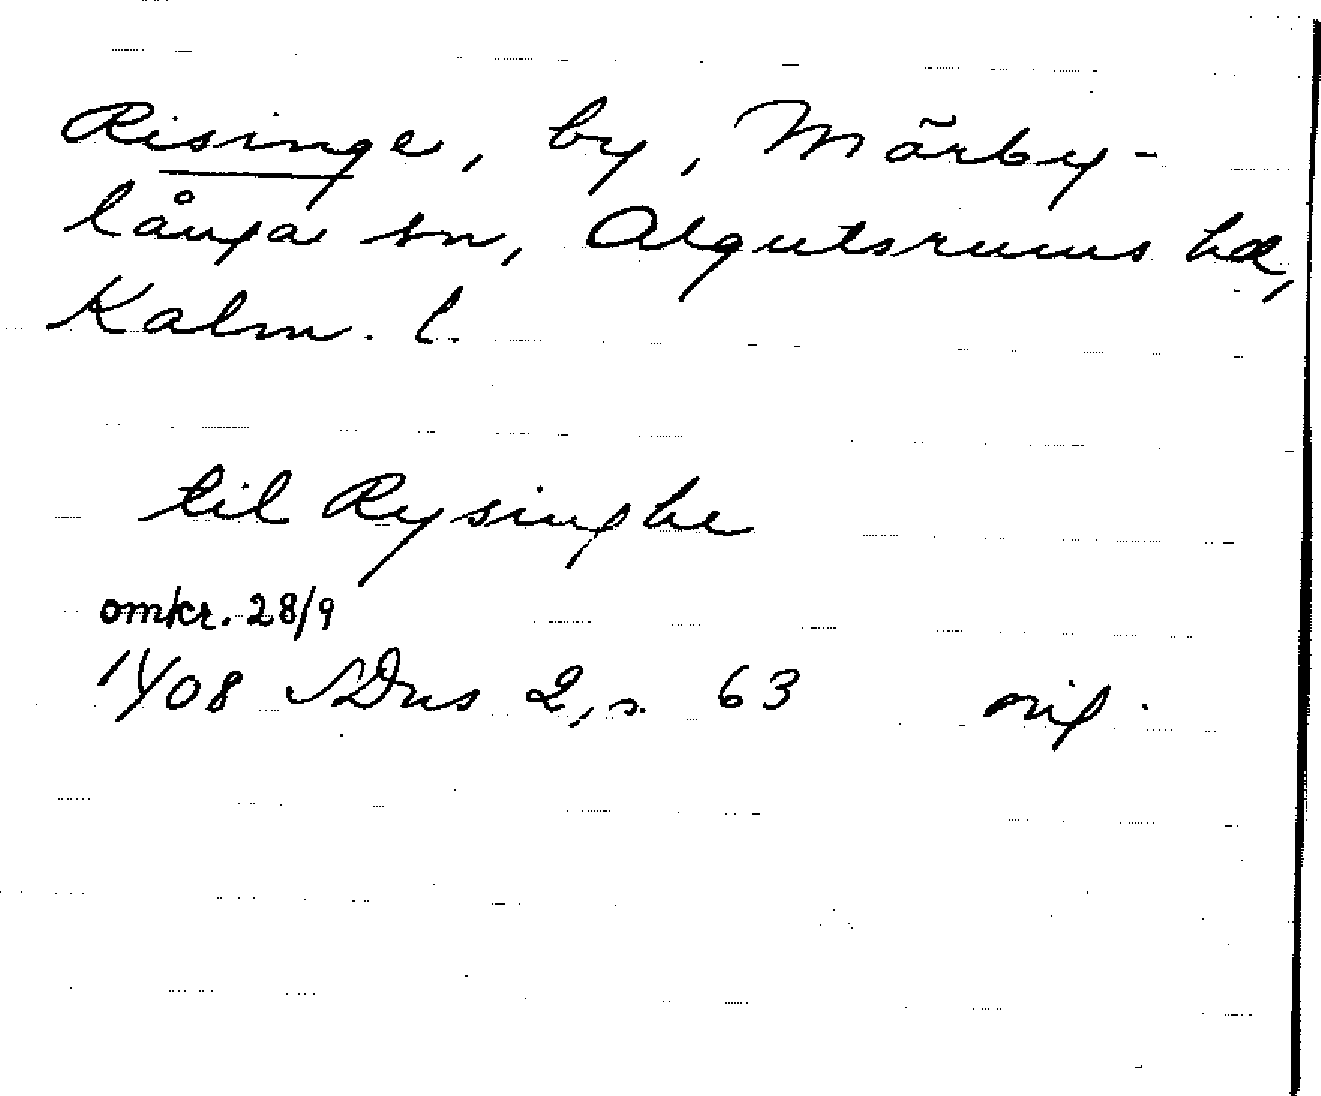 Risinge, by, Mörby-
långa sn, Algutsrums hd,
Kalm. l.
til Rysinghe
omkr. 28/9
1408 SDns 2, s. 63 orig.